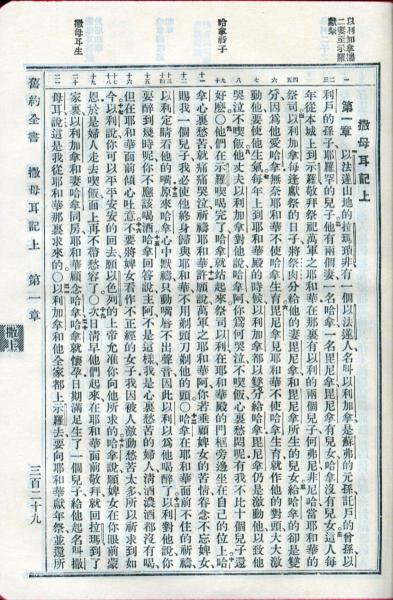 以利加拿攜
二妻至示羅
獻祭
哈拿祈子
撒母耳生
撒母耳記上
第一章 以法蓮山地的拉瑪瑣非有一個以法蓮人名叫以利加拿是蘇弗的元孫託戶的曾孫以
利戶的孫子耶羅罕的兒子他有兩個妻一名哈拿一名毘尼拿毘尼拿有兒女哈拿沒有兒女這人每
年從本城上到示羅敬拜祭祀萬軍之耶和華在那裏有以利的兩個兒子何弗尼非尼哈當耶和華的
祭司以利加拿每逢獻祭的日子將祭肉分給他的妻毘尼拿和毘尼拿所生的兒女給哈拿的卻是雙
分因爲他愛哈拿無奈耶和華不使哈拿生育毘尼拿見耶和華不使哈拿生育就作他的對頭大大激
動他要使他生氣每年上到耶和華殿的時候以利加拿都以雙分給哈拿毘尼拿仍是激動他以致他
哭泣不喫飯他丈夫以利加拿對他說哈拿阿你爲何哭泣不喫飯心裏愁悶呢有我不比十個兒子還
好麼○他們在示羅喫喝完了哈拿就站起來祭司以利在耶和華殿的門框旁邊坐在自己的位上哈
拿心裏愁苦就痛痛哭泣祈禱耶和華許願說萬軍之耶和華阿你若垂顧婢女的苦情眷念不忘婢女
賜我一個兒子我必使他終身歸與耶和華不用剃頭刀剃他的頭○哈拿在耶和華面前不住的祈禱
以利定睛看他的嘴原來哈拿心中默禱只動嘴唇不出聲音因此以利以爲他喝醉了以利對他說你
要醉到幾時呢你不應該喝酒哈拿回答說主阿不是這樣我是心裏愁苦的婦人清酒濃酒都沒有喝
但在耶和華面前傾心吐意不要將婢女看作不正經的女子我因被人激動愁苦太多所以祈求到如
今以利說你可以平平安安的回去願以色列的上帝允准你向他所求的哈拿說願婢女在你眼前蒙
恩於是婦人走去喫飯面上再不帶愁容了○次日清早他們起來在耶和華面前敬拜就回拉瑪到了
家裏以利加拿和妻哈拿同房耶和華顧念哈拿哈拿就懷孕日期滿足生了一個兒子給他起名叫撒
母耳說這是我從耶和華那裏求來的○以利加拿和他全家都上示羅去要向耶和華獻年祭並還所
舊約全書 撒母耳記上 第一章 三百二十九
撒上